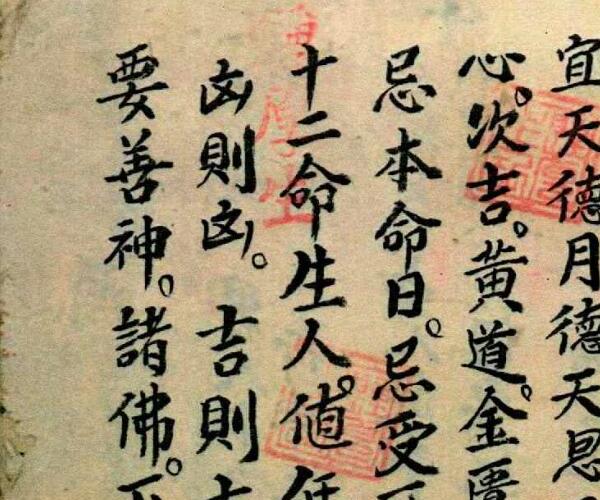 宜天德月德天恩
心。次吉。黃道。金匱
忌本命日。忌受
十二命生人。値
凶則凶。吉則
要善神。諸佛。